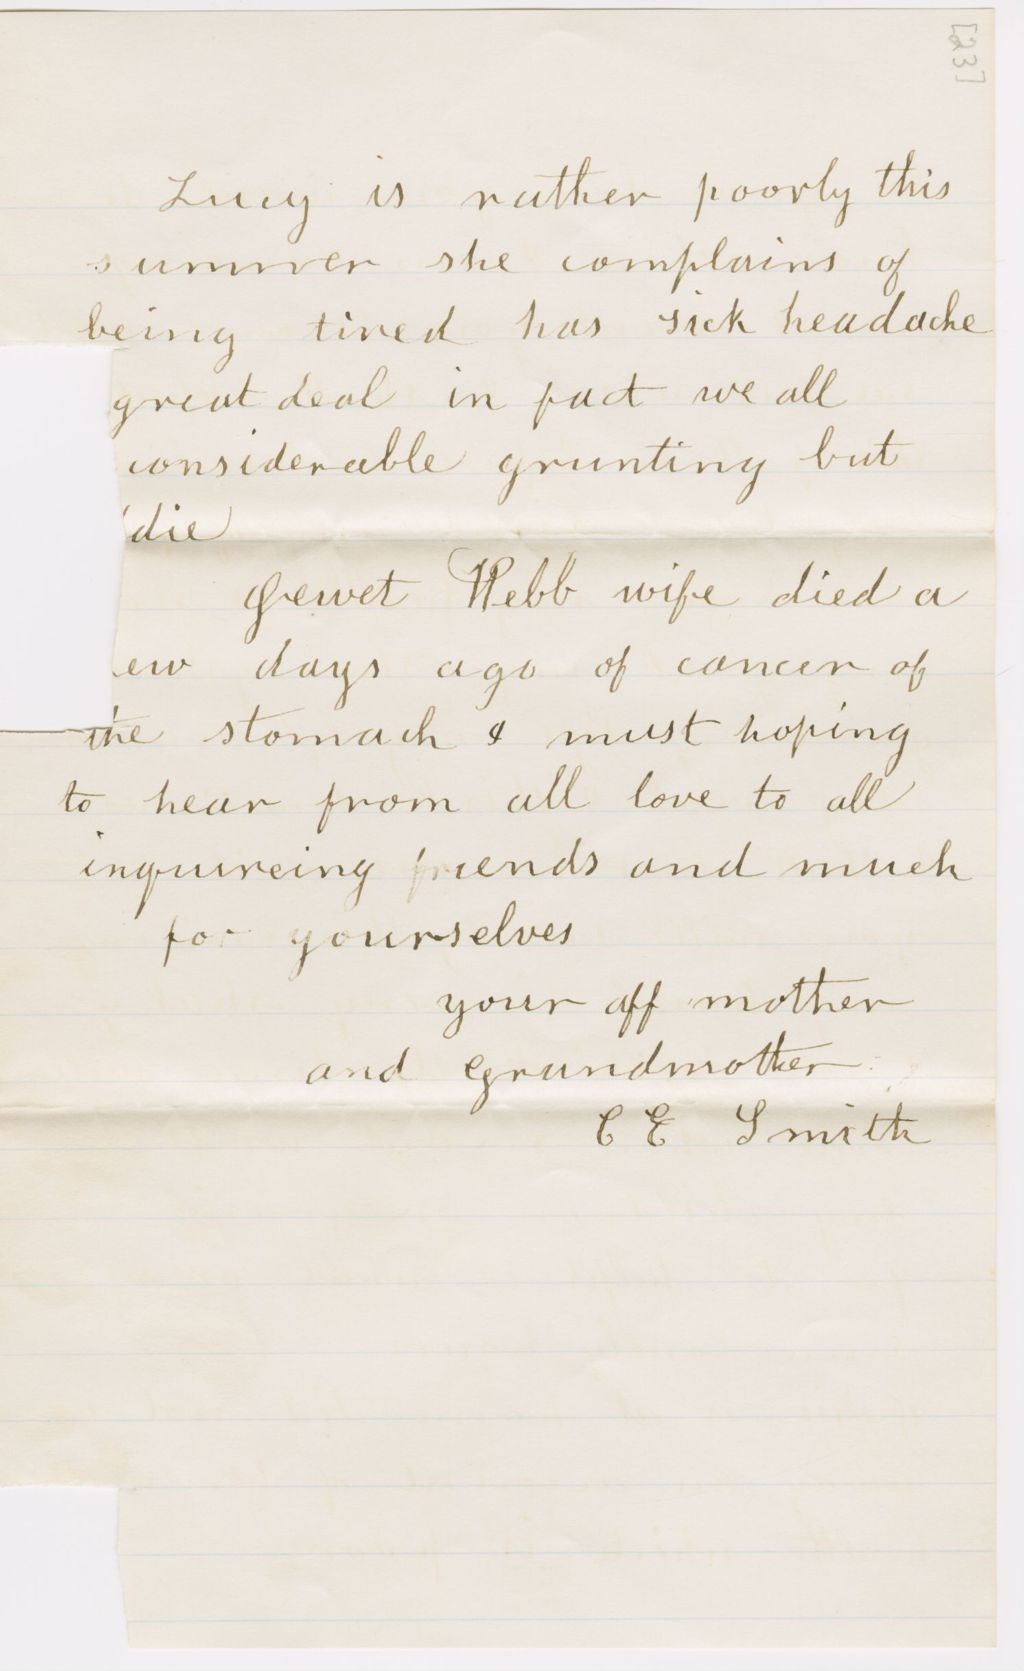 [23]
Lucy is rather poorly this
summer she complains of
being tired has sick headache
great deal in fact we all
considerable grunting but
die
Jewet Webb wife died a
ew days ago of cancer of
the stomach & must hoping
to hear from all love to all
inquireing friends and much
for yourselves
your aff mother
and grandmother
C E Smith